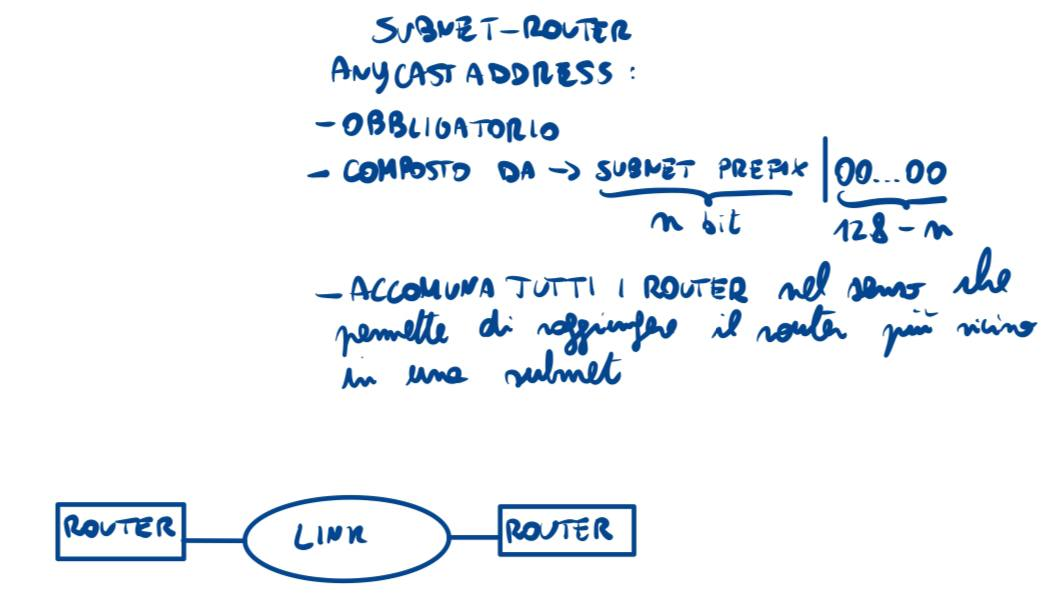 SUBNET-ROUTER
ANYCAST ADDRESS:
- OBBLIGATORIO
- COMPOSTO DA → SUBNET PREFIX | 00...00
n bit 128-n
- ACCOMUNA TUTTI I ROUTER nel senso che
permette di raggiungere il router più vicino
in una subnet
ROUTER LINK ROUTER